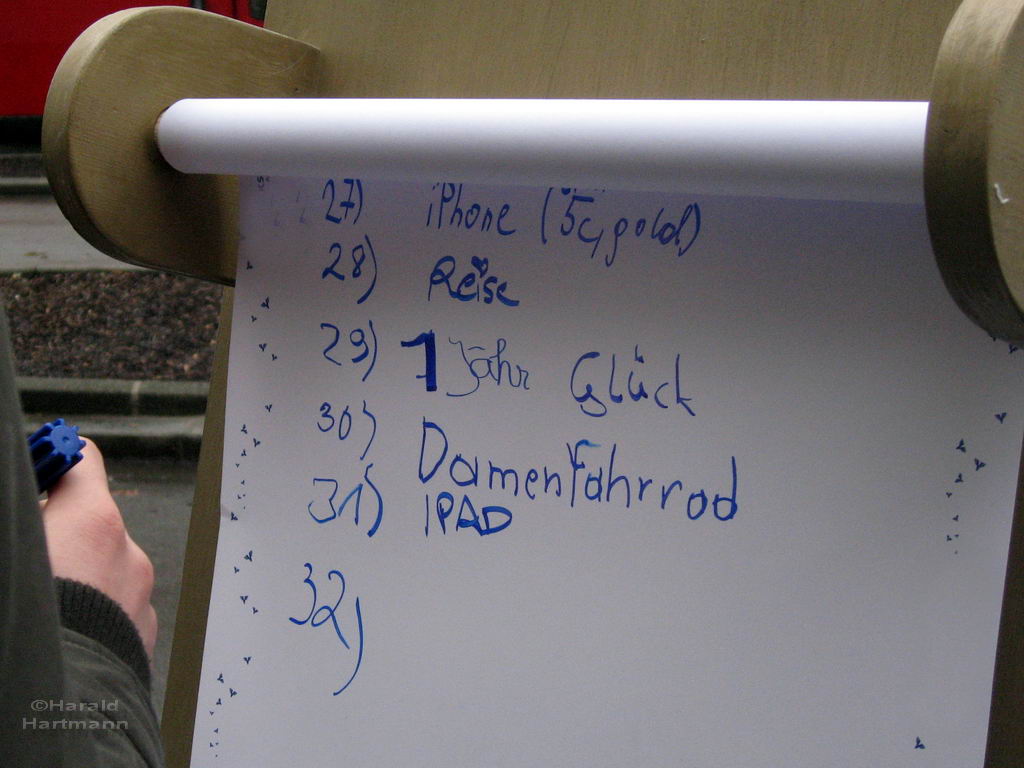 27) iPhone (5c, gold)
28) Reise
29) 1 Jahr Glück
30) Damenfahrrad
31) IPAD
32)
©Harald
Hartmann